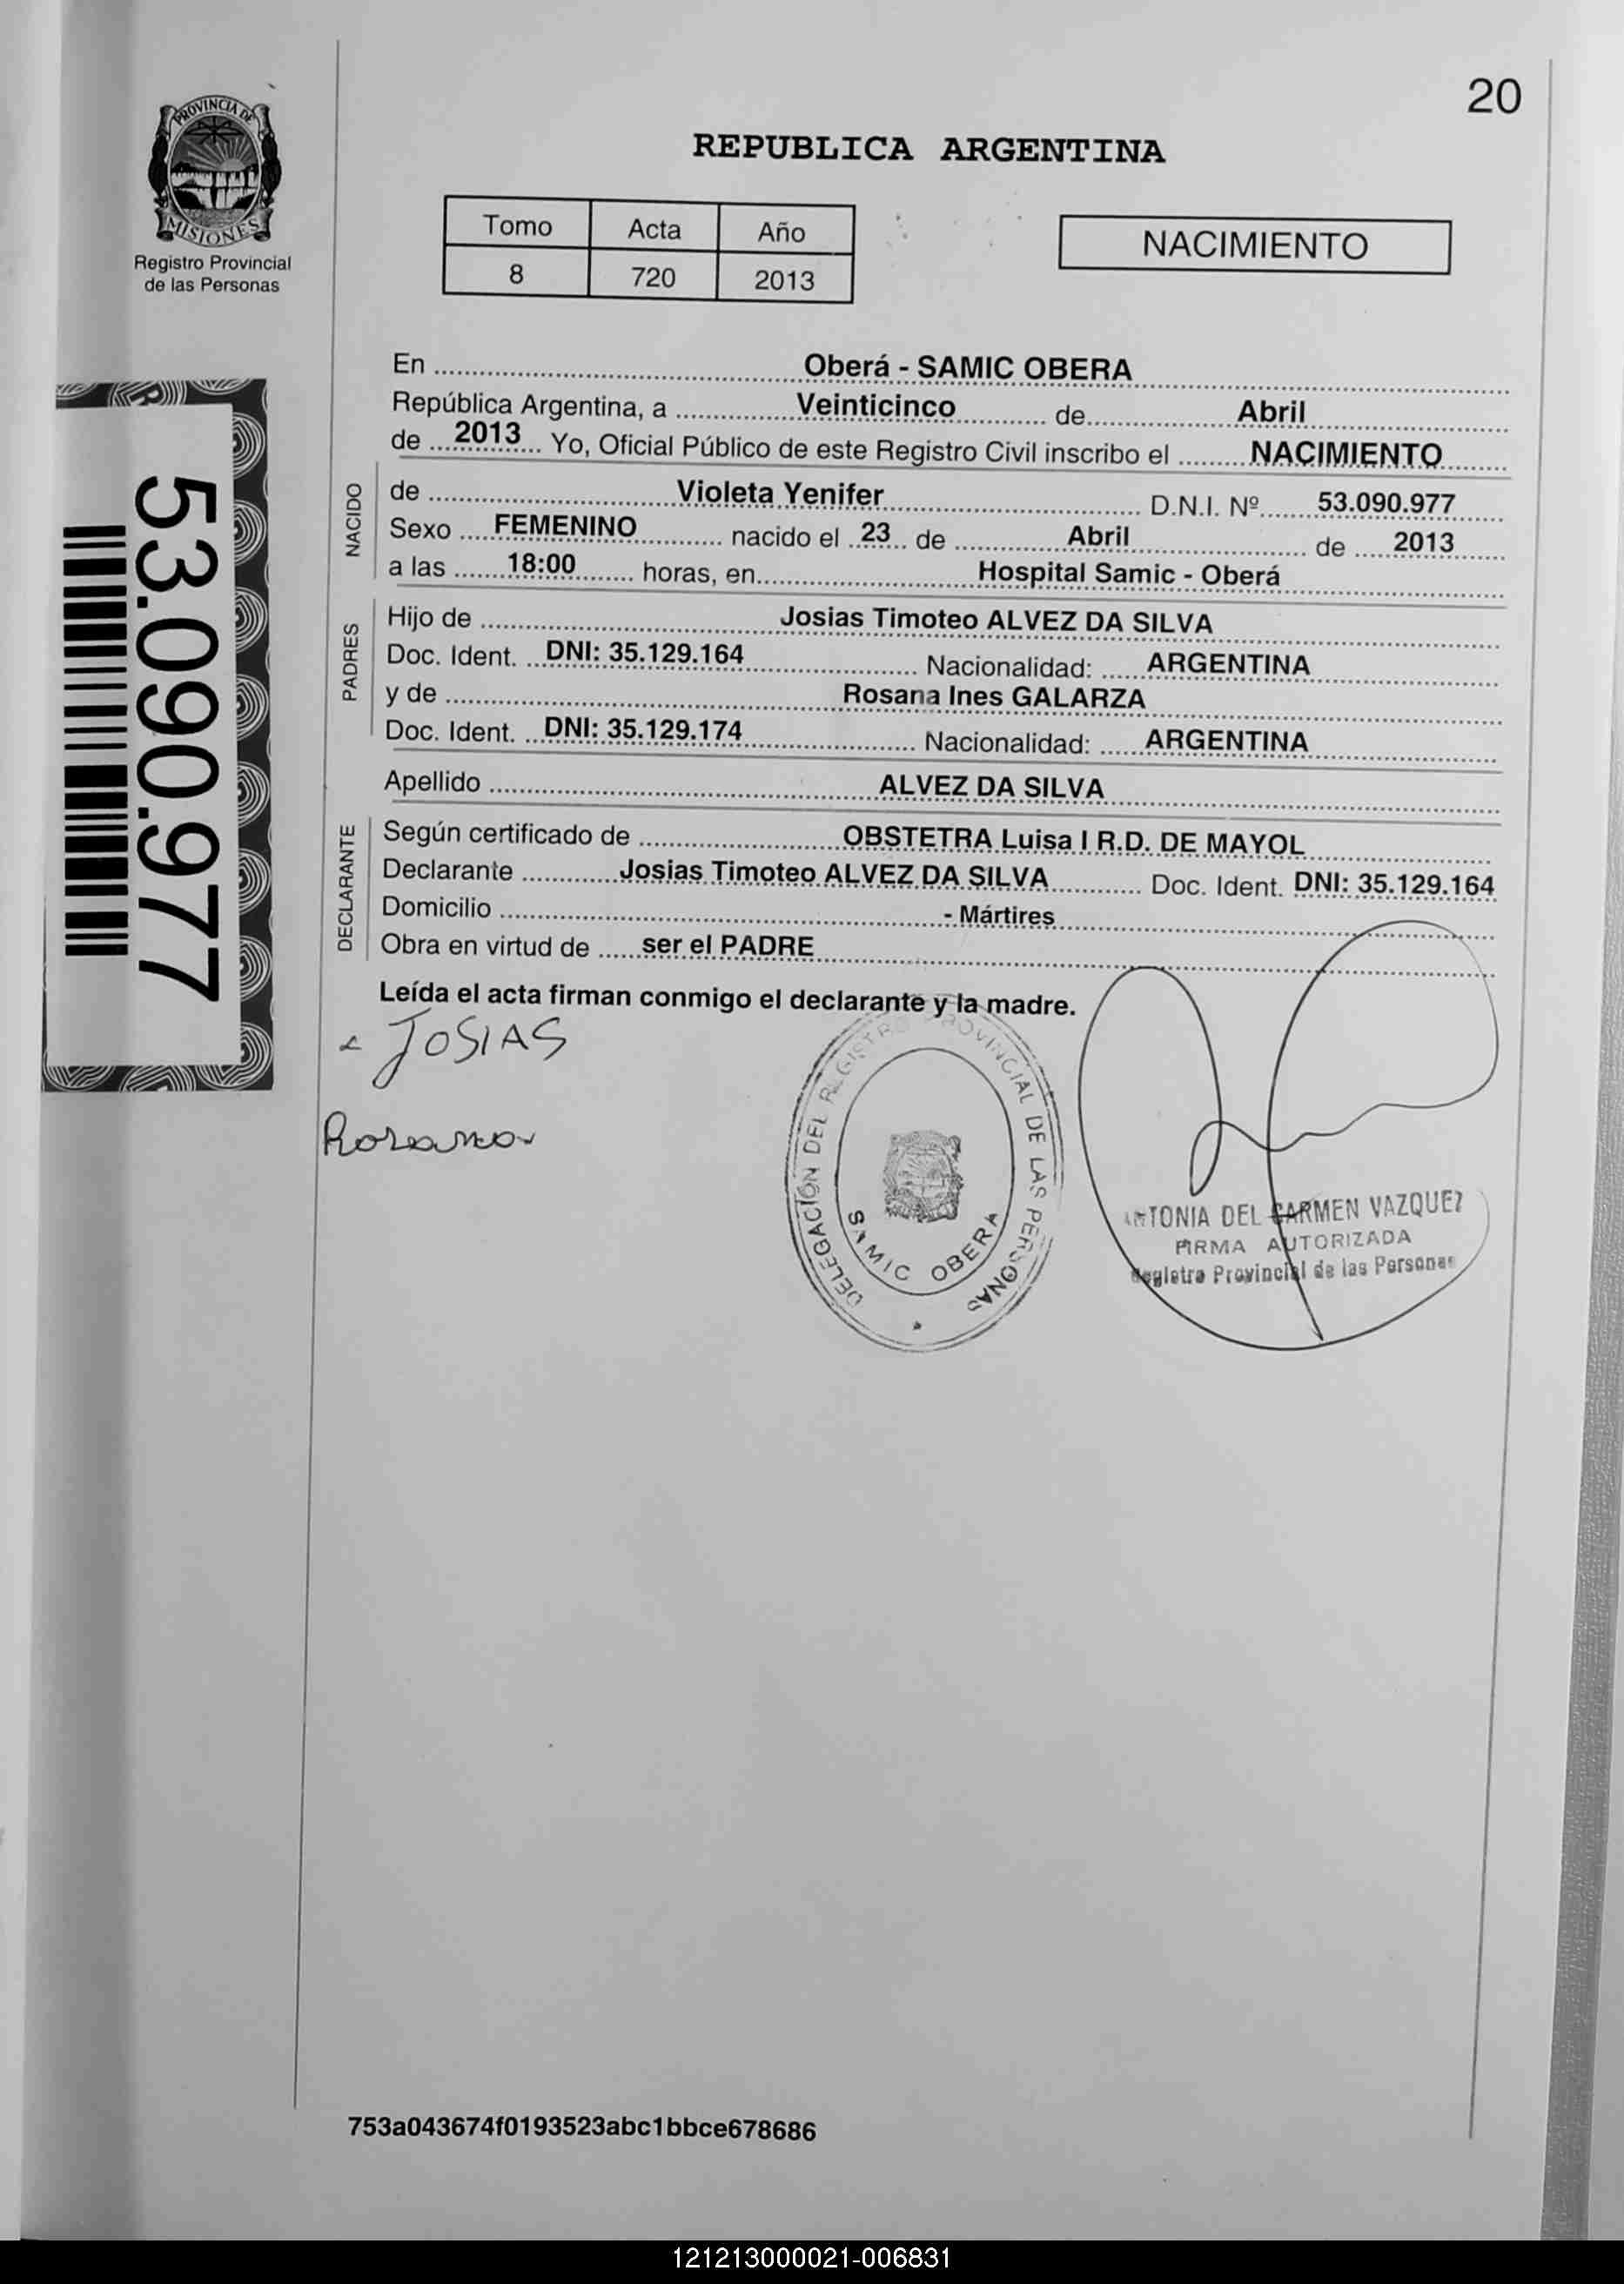 20
PROVINCIA DE
MISIONES
Registro Provincial
de las Personas
REPUBLICA ARGENTINA
Tomo Acta Año
8 720 2013
NACIMIENTO
53.090.977
En Oberá - SAMIC OBERA
República Argentina, a Veinticinco de Abril
de 2013 Yo, Oficial Público de este Registro Civil inscribo el NACIMIENTO
NACIDO
de Violeta Yenifer D.N.I. Nº 53.090.977
Sexo FEMENINO nacido el 23 de Abril de 2013
a las 18:00 horas, en Hospital Samic - Oberá
PADRES
Hijo de Josias Timoteo ALVEZ DA SILVA
Doc. Ident. DNI: 35.129.164 Nacionalidad: ARGENTINA
y de Rosana Ines GALARZA
Doc. Ident. DNI: 35.129.174 Nacionalidad: ARGENTINA
Apellido ALVEZ DA SILVA
DECLARANTE
Según certificado de OBSTETRA Luisa I R.D. DE MAYOL
Declarante Josias Timoteo ALVEZ DA SILVA Doc. Ident. DNI: 35.129.164
Domicilio - Mártires
Obra en virtud de ser el PADRE
Leída el acta firman conmigo el declarante y la madre.
JOSIAS
Rosana
DELEGACIÓN DEL REGISTRO PROVINCIAL DE LAS PERSONAS
SAMIC OBERA
ANTONIA DEL CARMEN VAZQUEZ
FIRMA AUTORIZADA
Registro Provincial de las Personas
753a043674f0193523abc1bbce678686
121213000021-006831